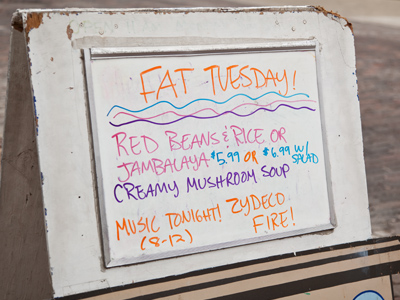 FAT TUESDAY!
RED BEANS & RICE OR
JAMBALAYA $5.99 OR $6.99 W/ SALAD
CREAMY MUSHROOM SOUP
MUSIC TONIGHT! ZYDECO
(8-12) FIRE!